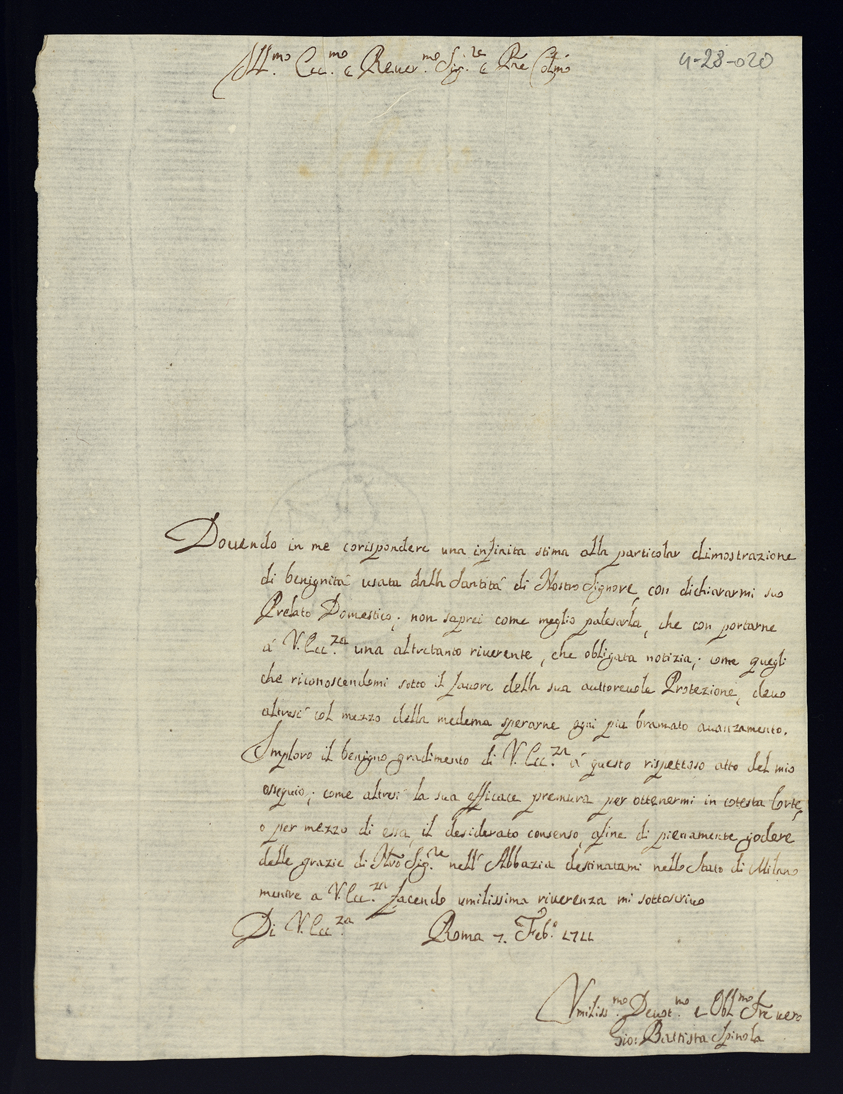 Ill.mo Ecc.mo e Reuer.mo Sig.re e Pne Colmo
4-28-020
Douendo in me corispondere una infinita stima alla particolar dimostrazione
di benignità usata dalla Santità di Nostro Signore, con dichiararmi suo
Prelato Domestico; non saprei come meglio palesarla, che con portarne
à V. Ecc.za una altretanto riuerente, che obligata notizia; come quegli
che riconoscendomi sotto il fauore della sua auttoreuole Protezione, deuo
altresi col mezzo della medema sperarne ogni piu bramato auanzamento.
Imploro il benigno gradimento di V. Ecc.za à questo rispettoso atto del mio
osequio; come altresi la sua efficace premura per ottenermi in cotesta Corte,
o per mezzo di essa, il desiderato consenso, afine di pienamente godere
delle grazie di Nro Sig.re nell'Abbazia destinatami nello Stato di Milano
mentre a V. Ecc.za facendo umilissima riuerenza mi sottoscriuo
Di V. Ecc.za Roma 7. Feb.o 1711
Vmiliss.mo Deuot.mo e Obl.mo uero
Gio: Battista Spinola